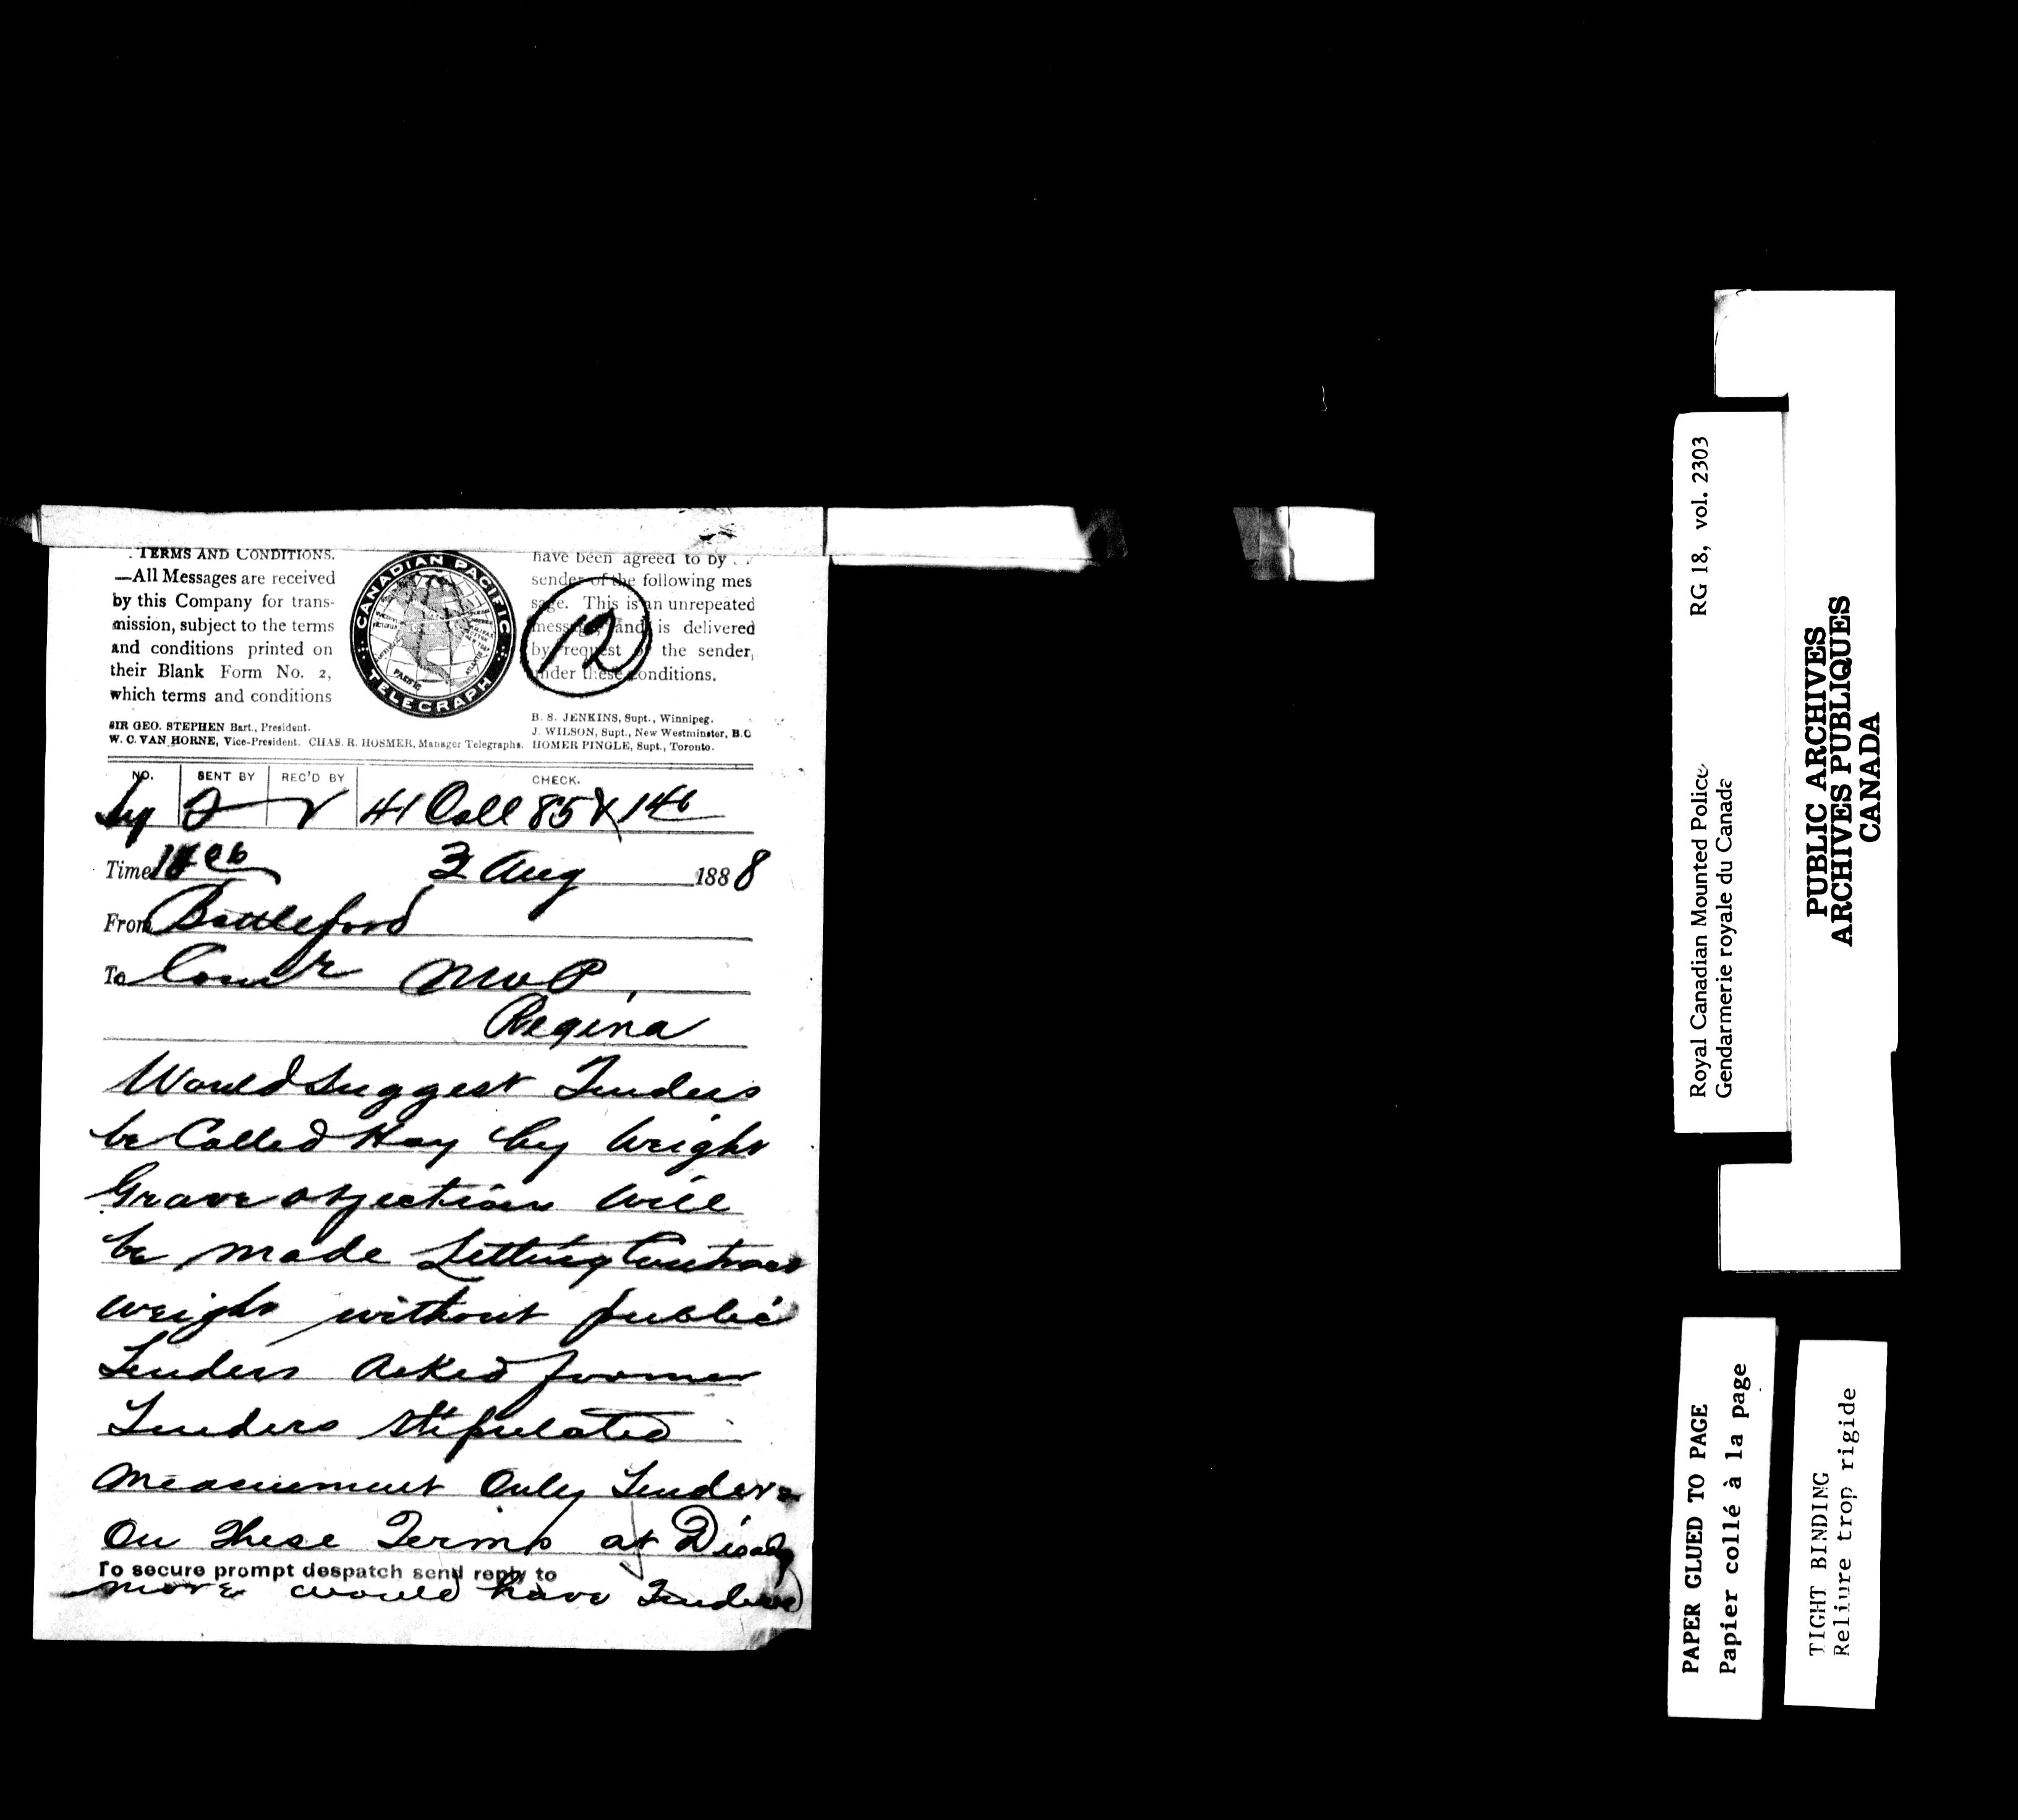 TERMS AND CONDITIONS.
—All Messages are received
by this Company for trans-
mission, subject to the terms
and conditions printed on
their Blank Form No. 2,
which terms and conditions
CANADIAN PACIFIC
TELEGRAPH
have been agreed to by
sender of the following mes
sage. This is an unrepeated
message, and is delivered
by request of the sender,
under these conditions.
12
SIR GEO. STEPHEN Bart., President.
W. C. VAN HORNE, Vice-President. CHAS. R. HOSMER, Manager Telegraphs.
B. S. JENKINS, Supt., Winnipeg.
J. WILSON, Supt., New Westminster, B.C
HOMER PINGLE, Supt., Toronto.
NO. SENT BY REC'D BY CHECK.
41 Coll 85
Time
3 Aug 1888
From Battleford
To Comr
Regina
Would Suggest Tenders
be Called Hay by Weight
Grave objection will
be made Letting Contract
weight without public
Tenders Asked former
Tenders Stipulated
measurement Only Tenders
On These Terms at
To secure prompt despatch send reply to
more would have Tendered
Royal Canadian Mounted Police RG 18, vol. 2303
Gendarmerie royale du Canada
PUBLIC ARCHIVES
ARCHIVES PUBLIQUES
CANADA
PAPER GLUED TO PAGE
Papier collé à la page
TIGHT BINDING
Reliure trop rigide